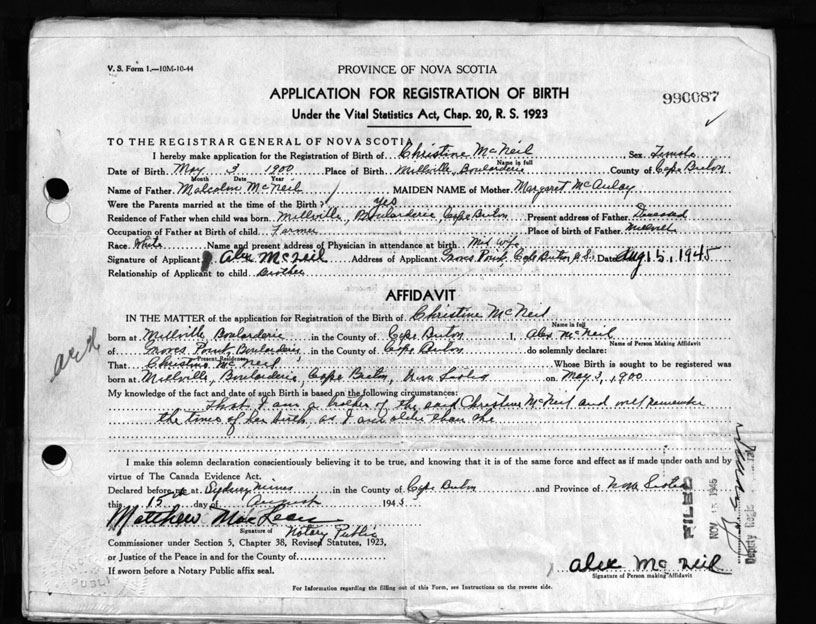 V. S. Form 1.—10M-10-44
PROVINCE OF NOVA SCOTIA
APPLICATION FOR REGISTRATION OF BIRTH
990087
Under the Vital Statistics Act, Chap. 20, R. S. 1923
TO THE REGISTRAR GENERAL OF NOVA SCOTIA
I hereby make application for the Registration of Birth of Christine McNeil Sex Female
Name in full
Date of Birth May 3 1900 Place of Birth Millville, Boularderie County of Cape Breton
Month Date Year
Name of Father Malcolm McNeil MAIDEN NAME of Mother Margaret McAulay
Were the Parents married at the time of the Birth? yes
Residence of Father when child was born Millville, Boularderie, Cape Breton Present address of Father Deceased
Occupation of Father at Birth of child Farmer Place of birth of Father
Race White Name and present address of Physician in attendance at birth Mid wife
Signature of Applicant Alex McNeil Address of Applicant Groves Point, Cape Breton, N.S. Date Aug 15, 1945
Relationship of Applicant to child Brother
AFFIDAVIT
IN THE MATTER of the application for Registration of the Birth of Christine McNeil
Name in full
born at Millville Boularderie in the County of Cape Breton I, Alex McNeil
Name of Person Making Affidavit
of Groves Point, Boularderie in the County of Cape Breton do solemnly declare:
Present Residence
That Christine McNeil Whose Birth is sought to be registered was
born at Millville, Boularderie, Cape Breton, Nova Scotia on May 3, 1900
My knowledge of the fact and date of such Birth is based on the following circumstances:
That I am a brother of the said Christine McNeil and well remember
the time of her birth as I am older than she
I make this solemn declaration conscientiously believing it to be true, and knowing that it is of the same force and effect as if made under oath and by
virtue of The Canada Evidence Act.
Declared before me at Sydney Mines in the County of Cape Breton and Province of Nova Scotia
this 15th day of August 1945
Matthew MacLean
Signature of Notary Public
Commissioner under Section 5, Chapter 38, Revised Statutes, 1923,
or Justice of the Peace in and for the County of
If sworn before a Notary Public affix seal.
Alex McNeil
Signature of Person making Affidavit
For Information regarding the filling out of this Form, see Instructions on the reverse side.
FILED
NOV 13 1945
Deputy Regis